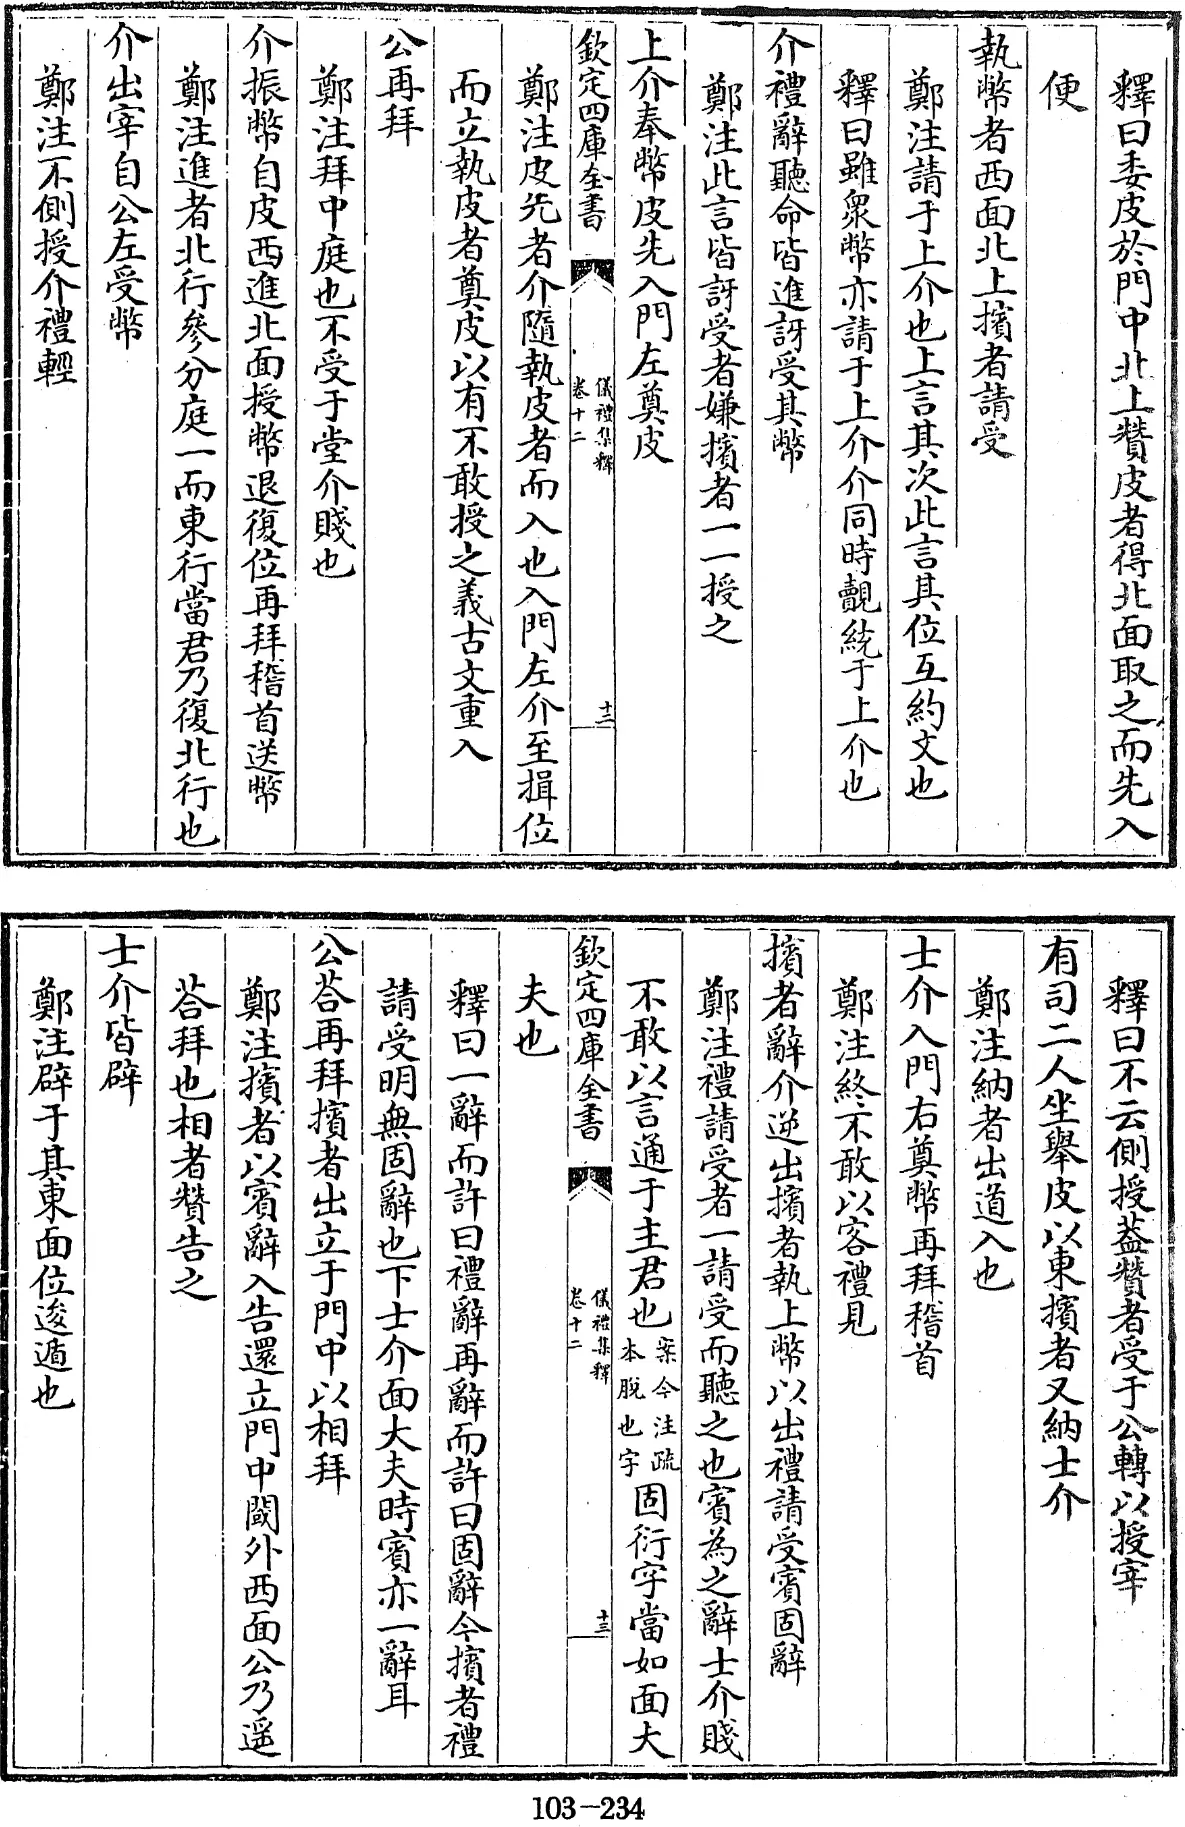 釋曰委皮於門中北上贊皮者得北面取之而先入
便
執幣者西面北上擯者請受
鄭注請于上介也上言其次此言其位互約文也
釋曰雖衆幣亦請于上介介同時覿統于上介也
介禮辭聽命皆進訝受其幣
鄭注此言皆訝受者嫌擯者一一授之
上介奉幣皮先入門左奠皮
欽定四庫全書
儀禮集釋
卷十二
十三
鄭注皮先者介隨執皮者而入也入門左介至揖位
而立執皮者奠皮以有不敢授之義古文重入
公再拜
鄭注拜中庭也不受于堂介賤也
介振幣自皮西進北面授幣退復位再拜稽首送幣
鄭注進者北行參分庭一而東行當君乃復北行也
介出宰自公左受幣
鄭注不側授介禮輕
釋曰不云側授葢贊者受于公轉以授宰
有司二人坐舉皮以東擯者又納士介
鄭注納者出道入也
士介入門右奠幣再拜稽首
鄭注終不敢以客禮見
擯者辭介逆出擯者執上幣以出禮請受賓固辭
鄭注禮請受者一請受而聽之也賓為之辭士介賤
不敢以言通于主君也案今注疏本脫也字固衍字當如面大
欽定四庫全書
儀禮集釋
卷十二
十三
夫也
釋曰一辭而許曰禮辭再辭而許曰固辭今擯者禮
請受明無固辭也下士介面大夫時賓亦一辭耳
公荅再拜擯者出立于門中以相拜
鄭注擯者以賓辭入告還立門中閾外西面公乃遥
荅拜也相者贊告之
士介皆辟
鄭注辟于其東面位逡遁也
103-234